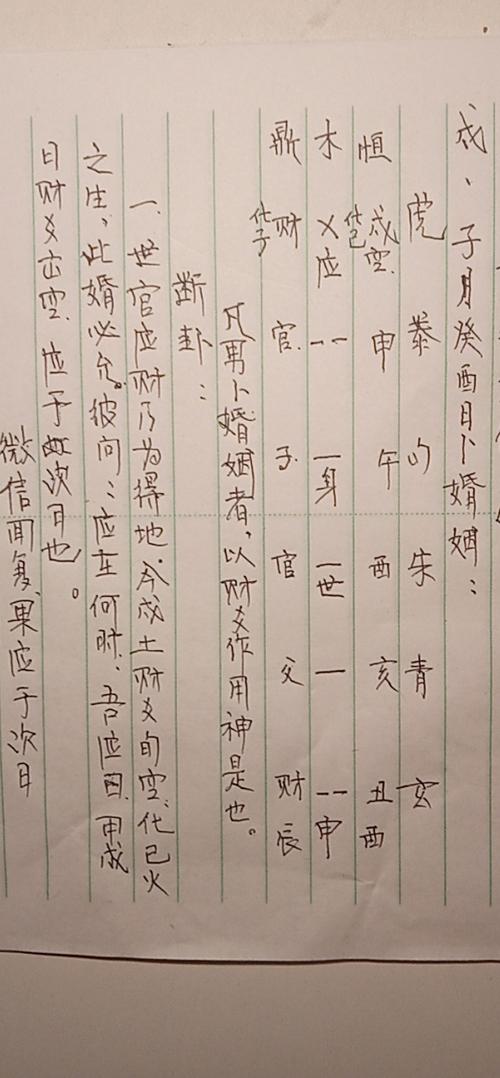 戌、子月癸酉日卜婚姻：
虎 豢 勾 朱 青 玄
恒 化巳 戌空 申 午 酉 亥 丑 酉
木 乂应 -- 一身 一世 一 -- 申
鼎 化子 财 官 子 官 父 财 辰
凡男卜婚姻者，以财爻作用神是也。
断卦：
一、世官应财乃为得地，今戌土财爻旬空，化巳火
之生，此婚必允。彼问：应在何时，吾应曰，甲戌
日财爻出空，应于此次日也。
微信回复，果应于次日